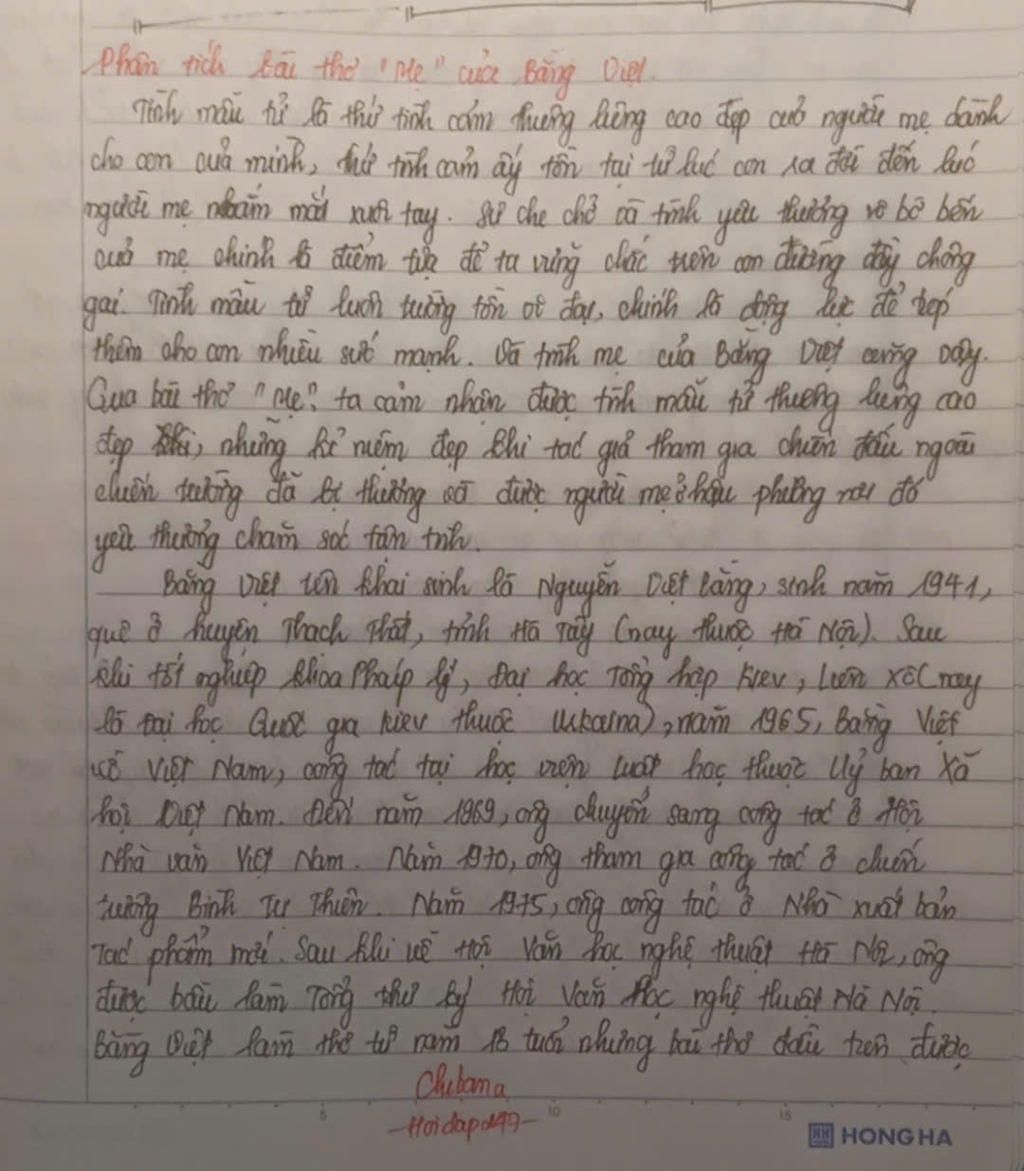 Phân tích bài thơ "Mẹ" của Bằng Việt.
Tình mẫu tử là thứ tình cảm thiêng liêng cao đẹp của người mẹ dành
cho con của mình, thứ tình cảm ấy tồn tại từ lúc con ra đời đến lúc
người mẹ nhắm mắt xuôi tay. Sự che chở và tình yêu thương vô bờ bến
của mẹ chính là điểm tựa để ta vững chắc trên con đường đầy chông
gai. Tình mẫu tử luôn trường tồn vĩ đại, chính là động lực để tiếp
thêm cho con nhiều sức mạnh. Và tình mẹ của Bằng Việt cũng vậy.
Qua bài thơ "Mẹ". ta cảm nhận được tình mẫu tử thiêng liêng cao
đẹp, những kỉ niệm đẹp khi tác giả tham gia chiến đấu ngoài
chiến trường đã bị thương và được người mẹ ở hậu phương nơi đó
yêu thương chăm sóc tận tình.
Bằng Việt tên khai sinh là Nguyễn Việt Bằng, sinh năm 1941,
quê ở huyện Thạch Thất, tỉnh Hà Tây (nay thuộc Hà Nội). Sau
khi tốt nghiệp khoa Pháp lý, Đại học Tổng hợp Kiev, Liên Xô (nay
là Đại học Quốc gia Kiev thuộc Ukraina), năm 1965, Bằng Việt
về Việt Nam, công tác tại học viện Luật học thuộc Uỷ ban Xã
hội Việt Nam. Đến năm 1969, ông chuyển sang công tác ở Hội
Nhà văn Việt Nam. Năm 1970, ông tham gia công tác ở chiến
trường Bình Trị Thiên. Năm 1975, ông công tác ở Nhà xuất bản
Tác phẩm mới. Sau khi về Hội Văn học nghệ thuật Hà Nội, ông
được bầu làm Tổng thư ký Hội Văn học nghệ thuật Hà Nội.
Bằng Việt làm thơ từ năm 13 tuổi nhưng bài thơ đầu tiên được
Chibama
-Hoidap247-
5 10 15
HH HONG HA